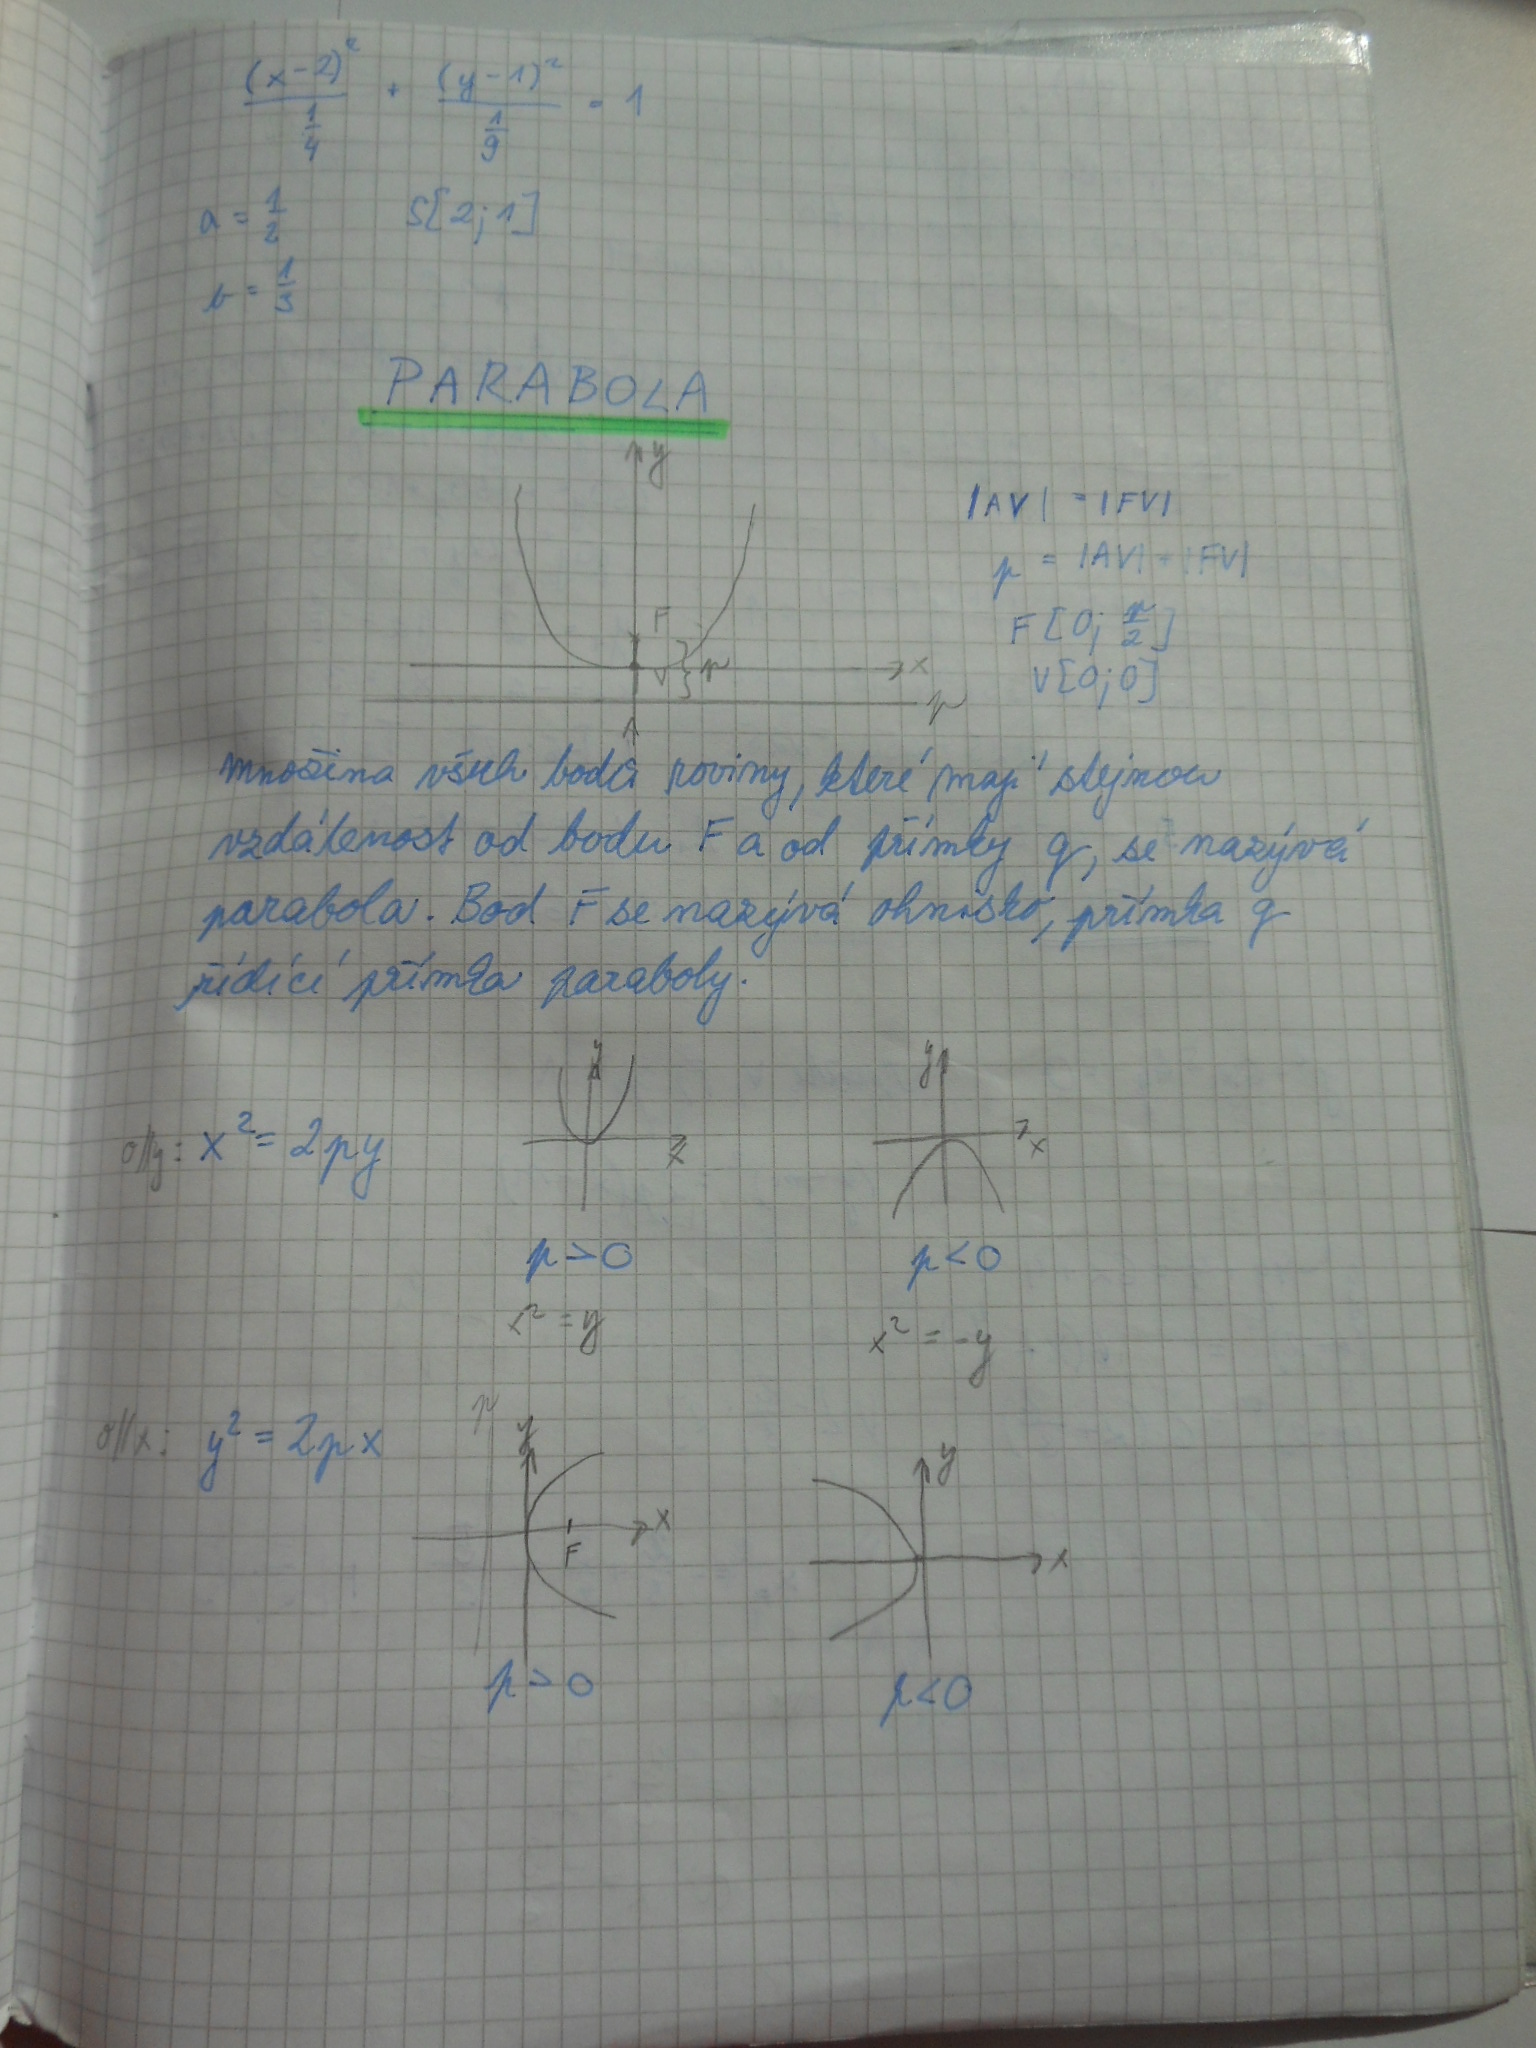 (x-2)²/(1/4) + (y-1)²/(1/9) = 1
a = 1/2 S[2;1]
b = 1/3
PARABOLA
y
|AV| = |FV|
p = |AV| + |FV|
F [0; p/2]
V[0;0]
F
V } p
x
p
A
množina všech bodů roviny, které mají stejnou
vzdálenost od bodu F a od přímky q, se nazývá
parabola. Bod F se nazývá ohnisko, přímka q
řídící přímka paraboly.
o||y: x² = 2py
y x
y x
p > 0 p < 0
x² = y x² = -y
o||x: y² = 2px
p y x F
y x
p > 0 p < 0